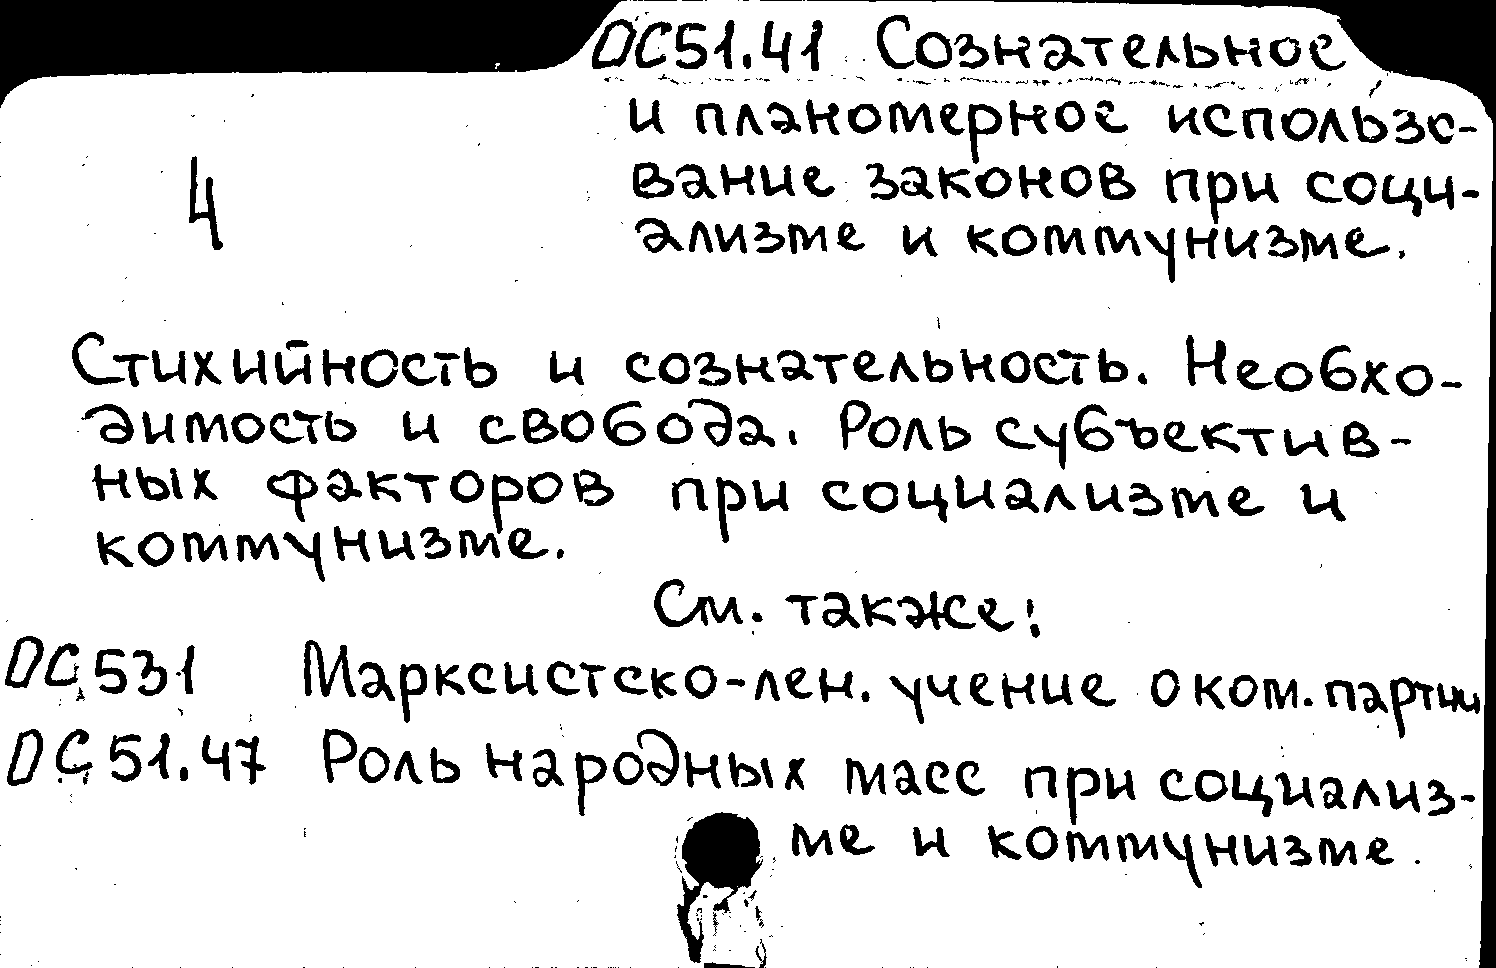 ОС51.41 Сознательное
и планомерное использо-
вание законов при соци-
ализме и коммунизме.
4
Стихийность и сознательность. Необхо-
димость и свобода. Роль субъектив-
ных факторов при социализме и
коммунизме.
См. также:
ОС531 Марксистско-лен. учение о ком. партии
ОС51.47 Роль народных масс при социализ-
ме и коммунизме.